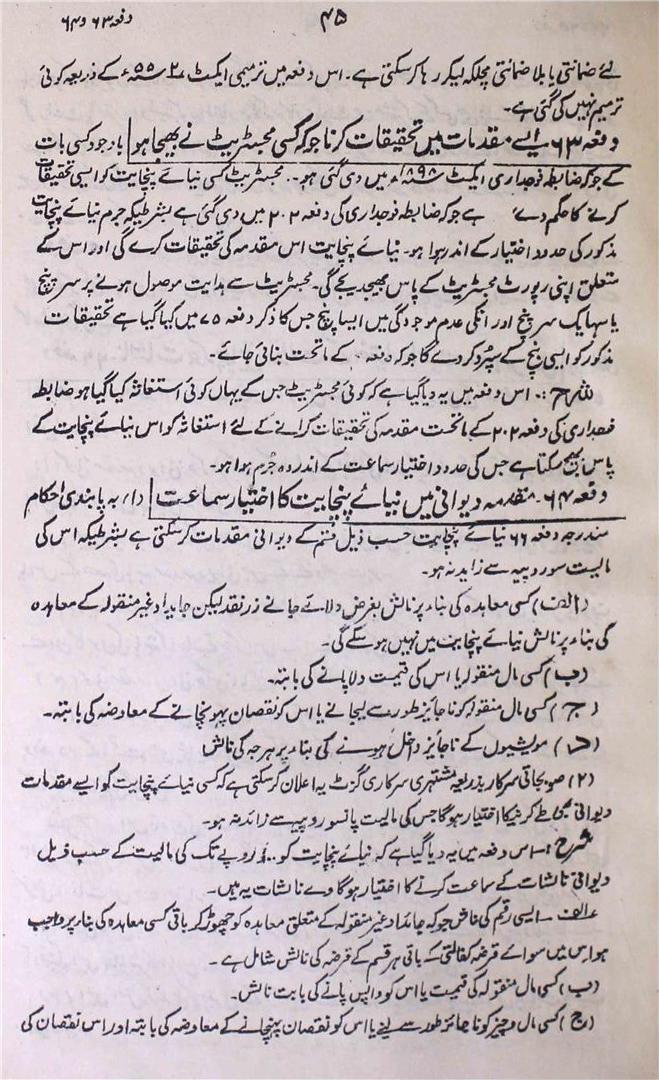 ۴۵
دفعہ ۶۳ و ۶۴
لئے ضمانتی یا بلا ضمانتی مچلکہ لیکر رہا کر سکتی ہے۔ اس دفعہ میں ترمیمی ایکٹ ۲ ۵۵ء کے ذریعہ کوئی
ترمیم نہیں کی گئی ہے۔
دفعہ ۶۳ ایسے مقدمات میں تحقیقات کرنا جو کہ کسی مجسٹریٹ نے بھیجا ہو باوجود کسی بات
کے جو کہ ضابطہ فوجداری ایکٹ ۱۸۹۸ء میں دی گئی ہو۔ مجسٹریٹ کسی نیائے پنچایت کو ایسی تحقیقات
کرنے کا حکم دے ہے جو کہ ضابطہ فوجداری کی دفعہ ۲۰۲ میں دی گئی ہے بشرطیکہ جرم نیائے پنچایت
مذکور کی حدود اختیار کے اندر ہوا ہو۔ نیائے پنچایت اس مقدمہ کی تحقیقات کرے گی اور اس کے
متعلق اپنی رپورٹ مجسٹریٹ کے پاس بھیجدیجے گی۔ مجسٹریٹ سے ہدایت موصول ہونے پر سرپنچ
یا سہایک سرپنچ اور انکی عدم موجودگی میں ایسا پنچ جس کا ذکر دفعہ ۷۵ میں کیا گیا ہے تحقیقات
مذکور کو ایسی بنچ کے سپرد کر دے گا جو کہ دفعہ کے ماتحت بنائی جائے۔
شرح :۔ اس دفعہ میں یہ دیا گیا ہے کہ کوئی مجسٹریٹ جس کے یہاں کوئی استغاثہ کیا گیا ہو ضابطہ
فوجداری کی دفعہ ۲۰۲ کے ماتحت مقدمہ کی تحقیقات کرانے کے لئے استغاثہ کو اس نیائے پنچایت کے
پاس بھیج سکتا ہے جس کی حدود اختیار سماعت کے اندر وہ جرم ہوا ہو۔
دفعہ ۶۴۔ مقدمہ دیوانی میں نیائے پنچایت کا اختیار سماعت (۱) بہ پابندی احکام
مندرجہ دفعہ ۶۶ نیائے پنچایت حسب ذیل قسم کے دیوانی مقدمات کر سکتی ہے بشرطیکہ اس کی
مالیت سو روپیہ سے زاید نہ ہو۔
(الف) کسی معاہدہ کی بناء پر نالش بغرض دلائے جانے زر نقد لیکن جایداد غیر منقولہ کے معاہدہ
کی بناء پر نالش نیائے پنچایت میں نہیں ہو سکے گی۔
(ب) کسی مال منقولہ یا اس کی قیمت دلا پانے کی بابتہ۔
(ج) کسی مال منقولہ کو ناجایز طور سے لیجانے یا اس کو نقصان پہونچانے کے معاوضہ کی بابتہ۔
(د) مویشیوں کے ناجایز داخل ہونے کی بناء پر ہرجہ کی نالش
(۲) صوبجاتی سرکار بذریعہ مشتہری سرکاری گزٹ یہ اعلان کر سکتی ہے کہ کسی نیائے پنچایت کو ایسے مقدمات
دیوانی بھی طے کرنیکا اختیار ہوگا جس کی مالیت پانسو روپیہ سے زائد نہ ہو۔
شرح :۔ اس دفعہ میں یہ دیا گیا ہے کہ نیائے پنچایت کو روپے تک کی مالیت کے حسب ذیل
دیوانی نالشات کے سماعت کرنے کا اختیار ہوگا وے نالشات یہ ہیں۔
الف۔ ایسی رقم کی نالش جو کہ جائداد غیر منقولہ کے متعلق معاہدہ کو چھوڑ کر باقی کسی معاہدہ کی بناء پر واجب
ہو اس میں سوائے قرضہ کفالتی کے باقی ہر قسم کے قرضہ کی نالش شامل ہے۔
(ب) کسی مال منقولہ کی قیمت یا اس کو واپس پانے کی بابت نالش۔
(ج) کسی مال و چیز کو ناجائز طور سے لینے یا اس کو نقصان پہنچانے کے معاوضہ کی بابتہ اور اس نقصان کی